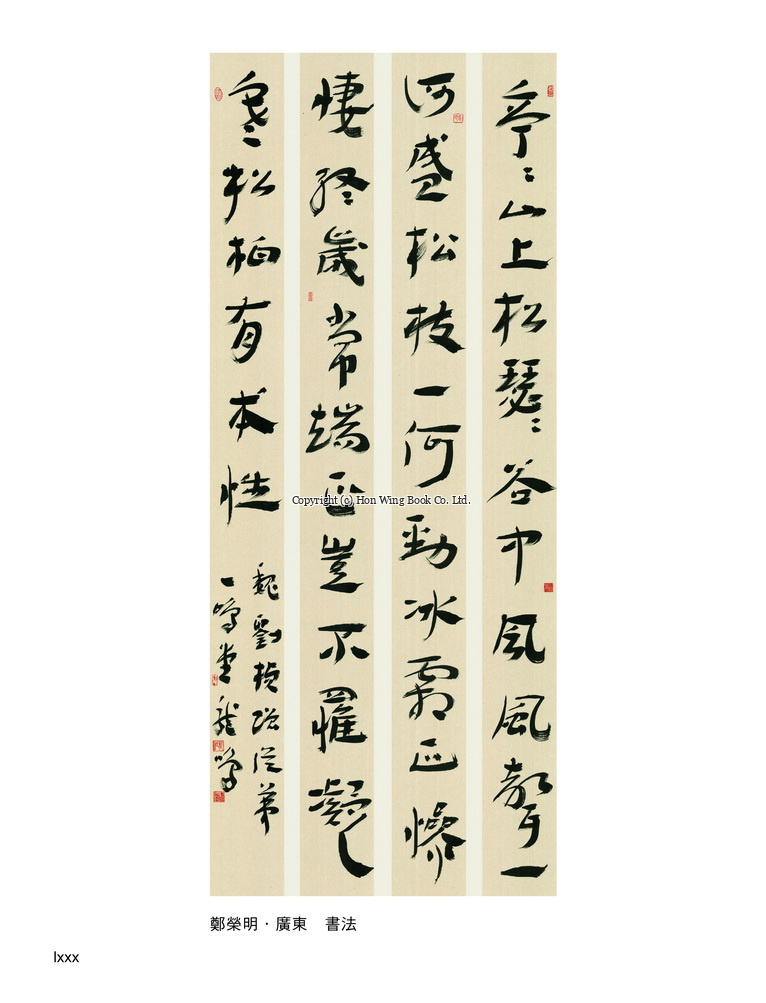 亭〻山上松瑟〻谷中風風聲一
何盛松枝一何勁冰霜正慘
悽終歲常端正豈不罹凝
寒松柏有本性
魏劉楨贈從弟
一鳴堂龍鳴
Copyright (c) Hon Wing Book Co. Ltd.
鄭榮明 · 廣東　書法
lxxx